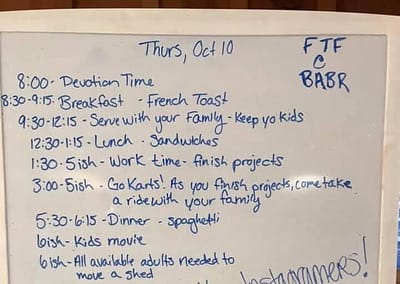 Thurs, Oct 10
FTF
C
BABR
8:00 - Devotion Time
8:30-9:15 - Breakfast - French Toast
9:30-12:15 - Serve with your Family - Keep yo kids
12:30-1:15 - Lunch - Sandwiches
1:30-5ish - Work time - finish projects
3:00-5ish - Go Karts! As you finish projects, come take
a ride with your family
5:30-6:15 - Dinner - spaghetti
6ish - Kids movie
6ish - All available adults needed to
move a shed
Instagramers!